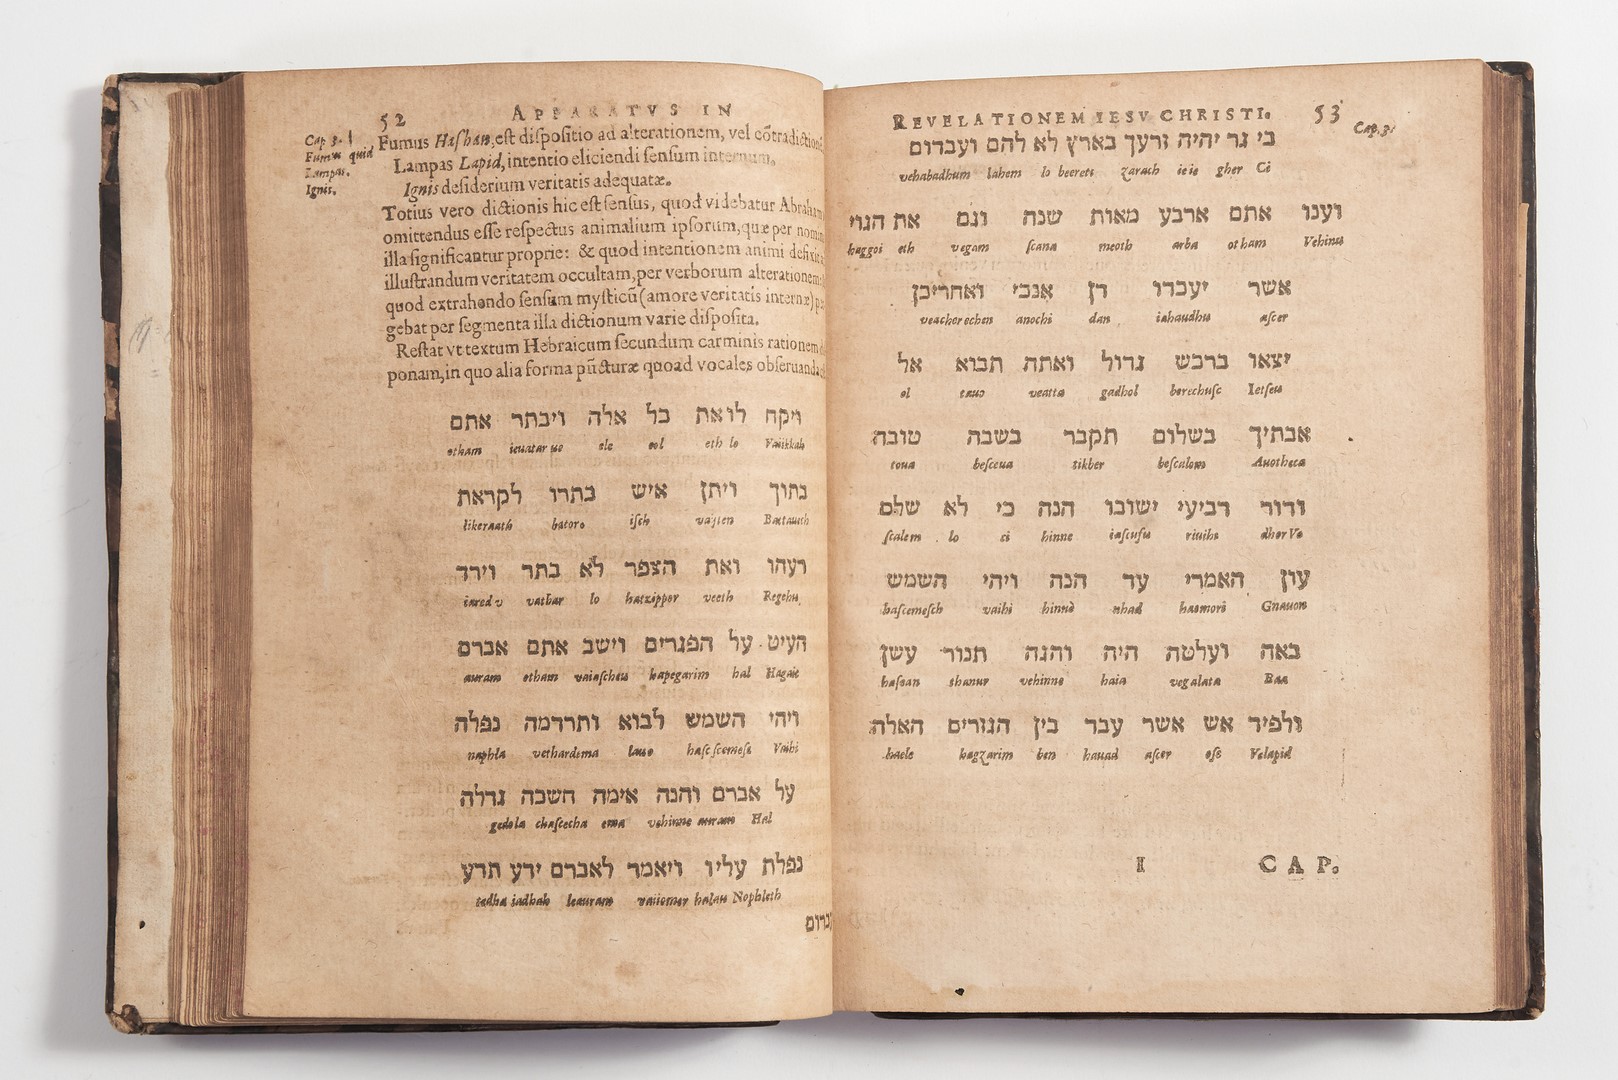 52 APPARATVS IN
Cap. 3.
Fumus quid
Lampas.
Ignis.
Fumus Hashan, est dispositio ad alterationem, vel cõtradictionẽ
Lampas Lapid, intentio eliciendi sensum internum.
Ignis desiderium veritatis adequatæ.
Totius vero dictionis hic est sensus, quod videbatur Abraham
omittendus esse respectus animalium ipsorum, quæ per nomin
illa significantur proprie: & quod intentionem animi defixit
illustrandum veritatem occultam, per verborum alterationem:
quod extrahendo sensum mysticũ (amore veritatis internæ) p
gebat per segmenta illa dictionum varie disposita.
Restat vt textum Hebraicum secundum carminis rationem
ponam, in quo alia forma pũcturæ quoad vocales obseruanda
ויקח לו את כל אלה ויבתר אתם
otham ieuatar uo ele col eth lo Vaiikkah
בתוך ויתן איש בתרו לקראת
likeraath batoro isch vaijten Battauuth
רעהו ואת הצפר לא בתר וירד
iared v vatbar lo hatzipper veeth Regehu
העיט על הפגרים וישב אתם אברם
auram otham vaiascheu hapegarim hal Hagait
ויהי השמש לבוא ותרדמה נפלה
naphla vethardema lauo hascscemess Vaihi
על אברם והנה אימה חשכה גדלה
gedola chascecha ema vehinne auram Hal
נפלת עליו ויאמר לאברם ידע תדע
tadha iadhah leauram vaiiomer halau Nophleth
REVELATIONEM IESV CHRISTI. 53
Cap. 3.
כי גר יהיה זרעך בארץ לא להם ועבדום
vehabadhum lahem lo beerets zarach ieie gher Ci
וענו אתם ארבע מאות שנה וגם את הגוי
haggoi eth vegam scana meoth arba otham Vehinu
אשר יעבדו דן אנכי ואחריכן
veacherechen anochi dan iahaudhu ascer
יצאו ברכש גדול ואתה תבוא אל
el tauo veatta gadhol berechusc Ietseu
אבתיך בשלום תקבר בשבה טובה
toua besceua tikber bescalom Auotheca
ודור רביעי ישובו הנה כי לא שלם
scalem lo ci hinne iascusu riuihi dhor Ve
עון האמרי עד הנה ויהי השמש
hascemesch vaihi hinnè nhad haemori Gnauon
באה ועלטה היה והנה תנור עשן
hassan thanur vehinne haia vegalata Baa
ולפיד אש אשר עבר בין הגזרים האלה
haele hagzarim ben hauad ascer ess Velapid
I CAP.